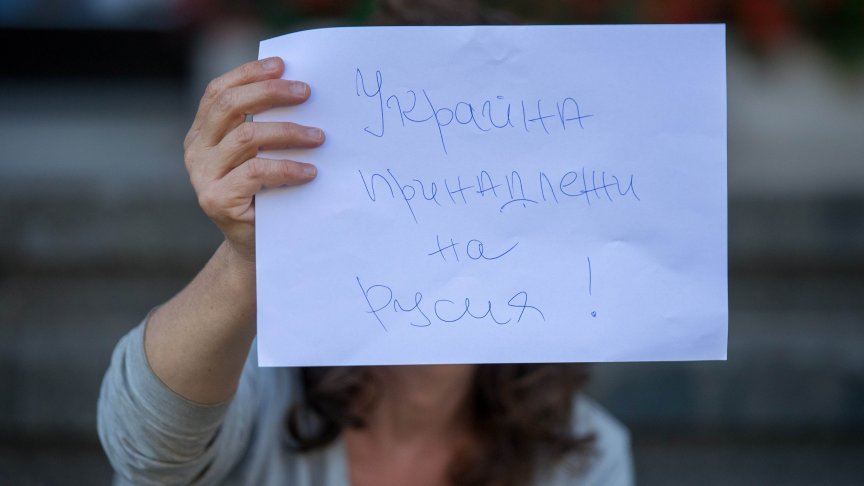 Украйна
принадлежи
на
русия !